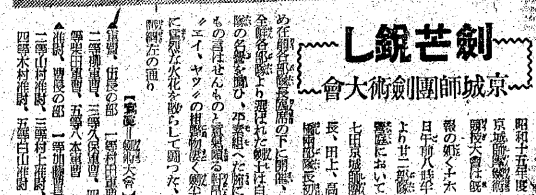 劍芒鋭し
京城師團劍術大會
昭和十五年度
京城師團
劍術大會は既
報の如く十六
日午前八時半
より廿二部隊
營庭において
七田京城師團
長、田上、高
橋兩部隊長
め在鮮各部隊長臨席の下に開催、
全鮮各部隊より選ばれた劍士は白
隊の名譽を擔ひ、平素鍛へた腕に
もの言はせんものと意氣頗る昂
〃エイ、ヤツ〃の
に猛烈な火花を散らして鬪つた、
成績左の通り
【寫眞＝劍術大會】
▲軍曹、伍長の部 一等村田軍曹
二等柳軍曹、三等久保軍曹、四
等柴田軍曹、五等八木軍曹
▲准尉、曹長の部 一等加藤曹長
二等山村准尉、三等村上准尉、
四等水村准尉、五等白山准尉